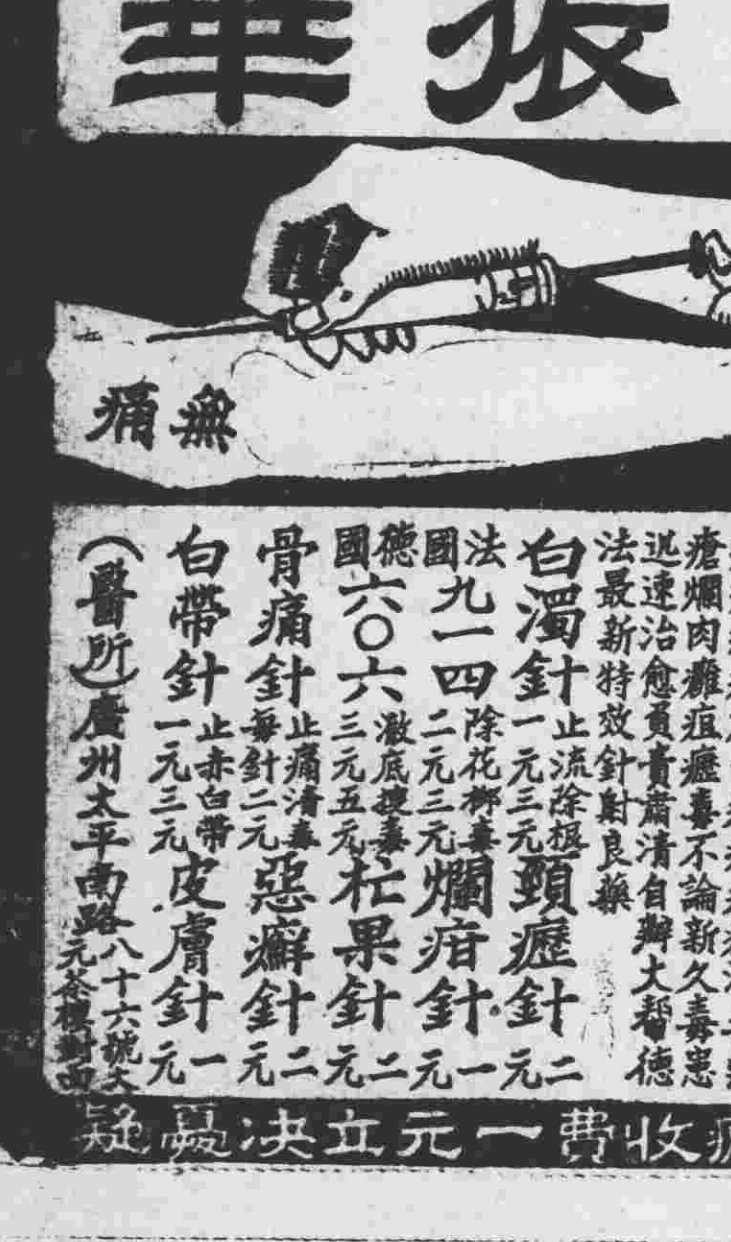 振華
無痛
瘡爛肉癱疽癧毒不論新久毒患
迅速治愈負責肅清自辦大幫德
法最新特效針射良藥
白濁針止流除根一元三元頸癧針二元
法國九一四除花柳毒二元三元爛疳針一元
德國六〇六澈底搜毒三元五元杧果針二元
骨痛針止痛清毒每針二元惡癬針二元
白帶針止赤白帶一元三元皮膚針一元
(醫所)廣州太平南路八十六號大元茶樓對面
收費一元立決憂疑